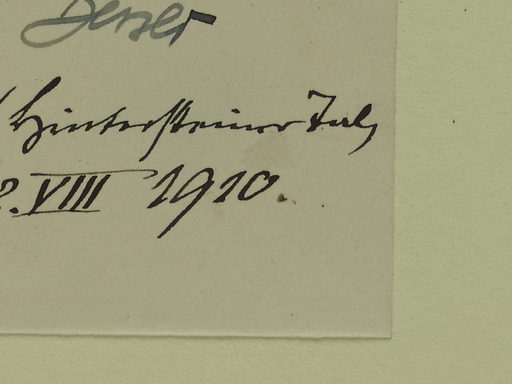 Hintersteiner Tal,
2. VIII 1910.